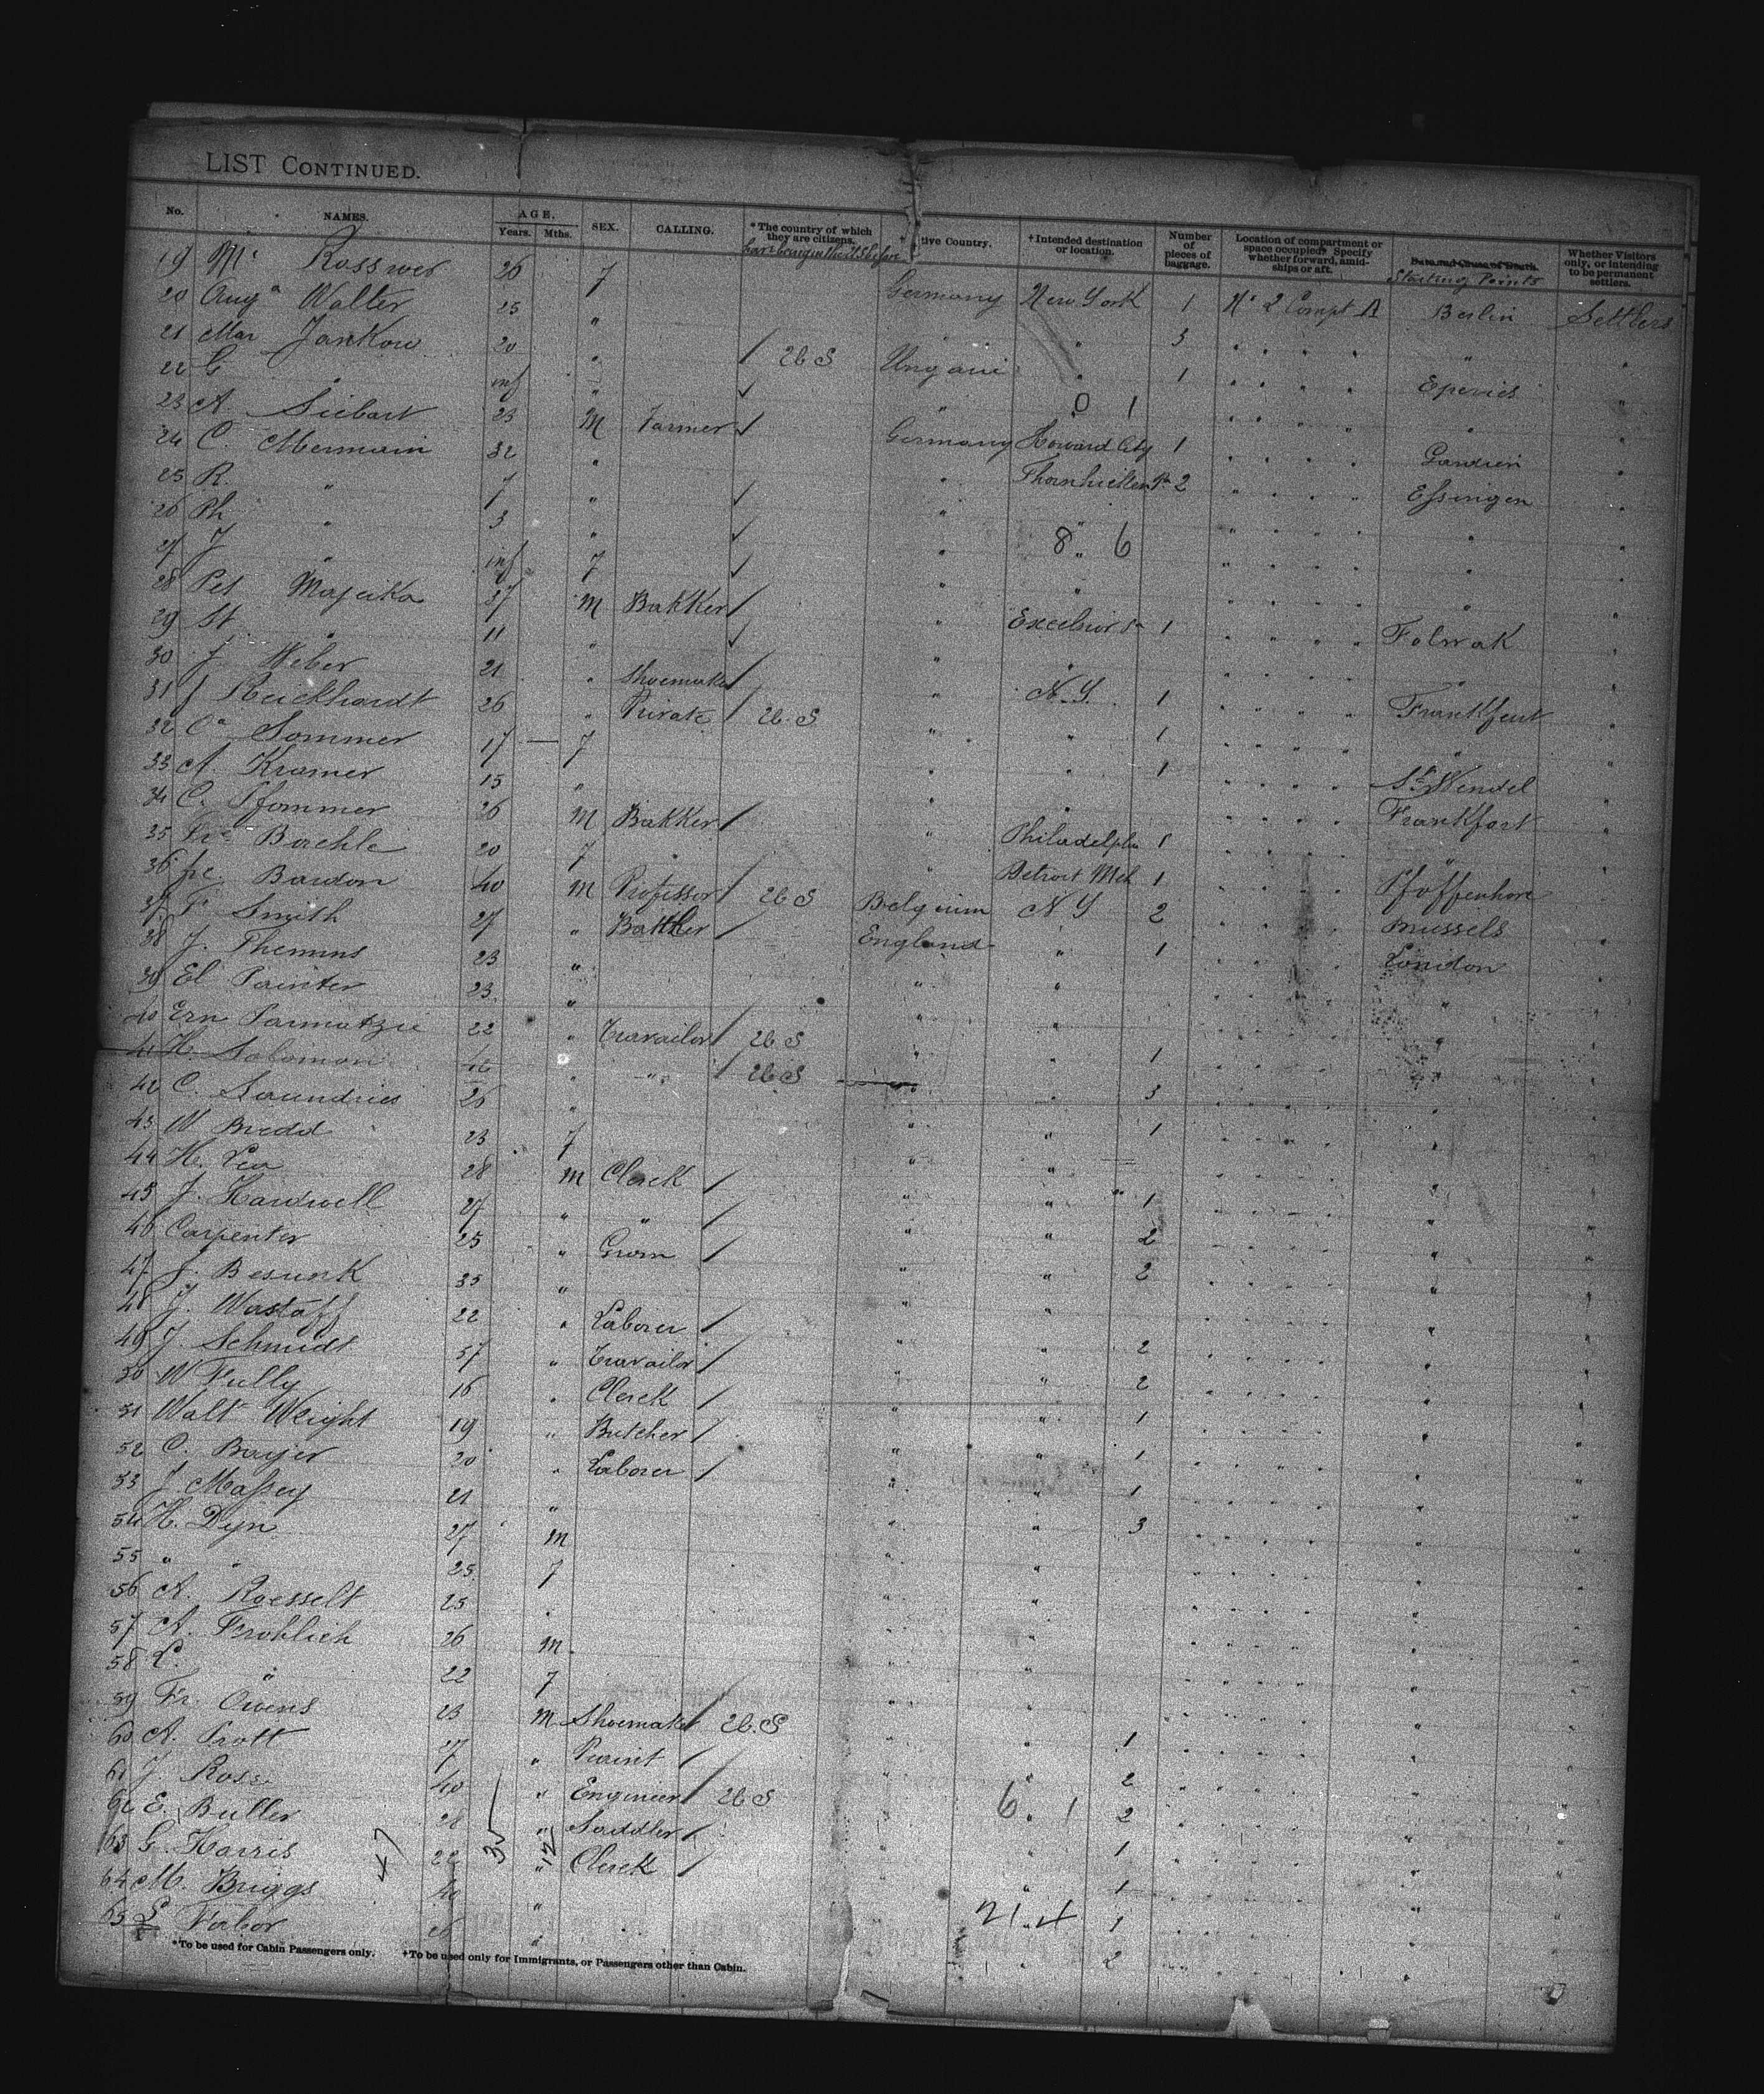 LIST CONTINUED.
No. NAMES. AGE. Years. Mths. SEX. CALLING. *The country of which they are citizens. †Intended destination or location. Number of pieces of baggage. Location of compartment or space occupied. Specify whether forward, amidships or aft. Date and Cause of Death. Starting Points Whether Visitors only, or intending to be permanent settlers.
19 Rosswer 26 f Germany New York 1 No 2 Compt A Berlin Settlers
20 Auga Walter 25 " " " 3 " "
21 Mar Jankow 20 " / U S Ungani " 1 Eperies "
22 G " inf " ✓ " 0 1 " "
23 A. Siebart 23 M Farmer ✓ Germany Howard City 1 "
24 C. Mermain 32 " " 2 Essingen "
25 R. " 7 " ✓ " " " "
26 Ph " 3 " ✓ " 8 " 6 " "
27 J " inf f ✓ " " " "
28 Pet Majeika 37 M Bakker / " 1 Folwak "
29 St " 11 " ✓ " " " "
30 J Weber 21 " Shoemaker / " N. Y. 1 Frankfurt "
31 J Reickhardt 26 " Private / U. S " " 1 " "
32 Ca Sommer 17 — f " " 1 St Wendel "
33 A. Kramer 15 " " " Frankfort "
34 C. Pfommer 26 M Bakker / " Philadelphia 1 " "
35 Frc Baehle 20 f " " Detroit Mch 1 "
36 Bardon 40 M Professor / U S Belgium N Y 2 Brussels "
37 F Smith 27 " Bakker / England " 1 London "
38 J. Themins 23 " " " " "
39 El Painter 23 " " " " "
40 Ern Parmatzie 22 " Travailor / U S " " 1 " "
41 H. Solomon 42 " " / U S " " 3 " "
42 C. Saundries 26 " " " 1 " "
43 W Bredd 23 f " " " "
44 H. Lea 28 M Clerck / " " 1 " "
45 J. Hardwell 27 " " / " " 2 " "
46 Carpenter 25 " Grom / " " 2 " "
47 J. Besunk 35 " " " " "
48 J. Wastaff 22 " Laborer / " " 2 " "
49 J. Schmidt 57 " Travailor / " " 2 " "
50 W Fully 16 " Clerck / " " 1 " "
51 Walt Weight 19 " Butcher / " " 1 " "
52 C. Bayer 20 " Laborer / " " 1 " "
53 J Massey 21 " " " 3 " "
54 H. Dyn 27 M " " " "
55 " " 25 f " " " "
56 A. Roesselt 25 " " " " "
57 A. Frohlich 26 M " " " "
58 L. " 22 f " " " "
59 Fr. Owens 23 M Shoemaker U. S " " 1 " "
60 A. Prott 27 " / " " 2 " "
61 J. Rose 40 " Engineer / U S " 6 " 1 2 " "
62 E. Buller 28 " Saddler / " " 1 " "
63 G. Harris 22 " Clerck / " " 1 " "
64 M. Briggs 40 " 21 " 4 1 " "
65 L Fabor 26 " " 2 "
*To be used for Cabin Passengers only. †To be used only for Immigrants, or Passengers other than Cabin.